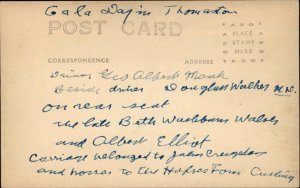 Gala Days in Thomaston
POST CARD
PLACE
STAMP
HERE
CORRESPONDENCE
ADDRESS
Driver Geo Albert Monk
Beside driver Douglass Walker M.D.
on rear seat
the late Beth Washburn Walker
and Albert Elliot
Carriage belonged to John Creighton
and horses to the Cushing